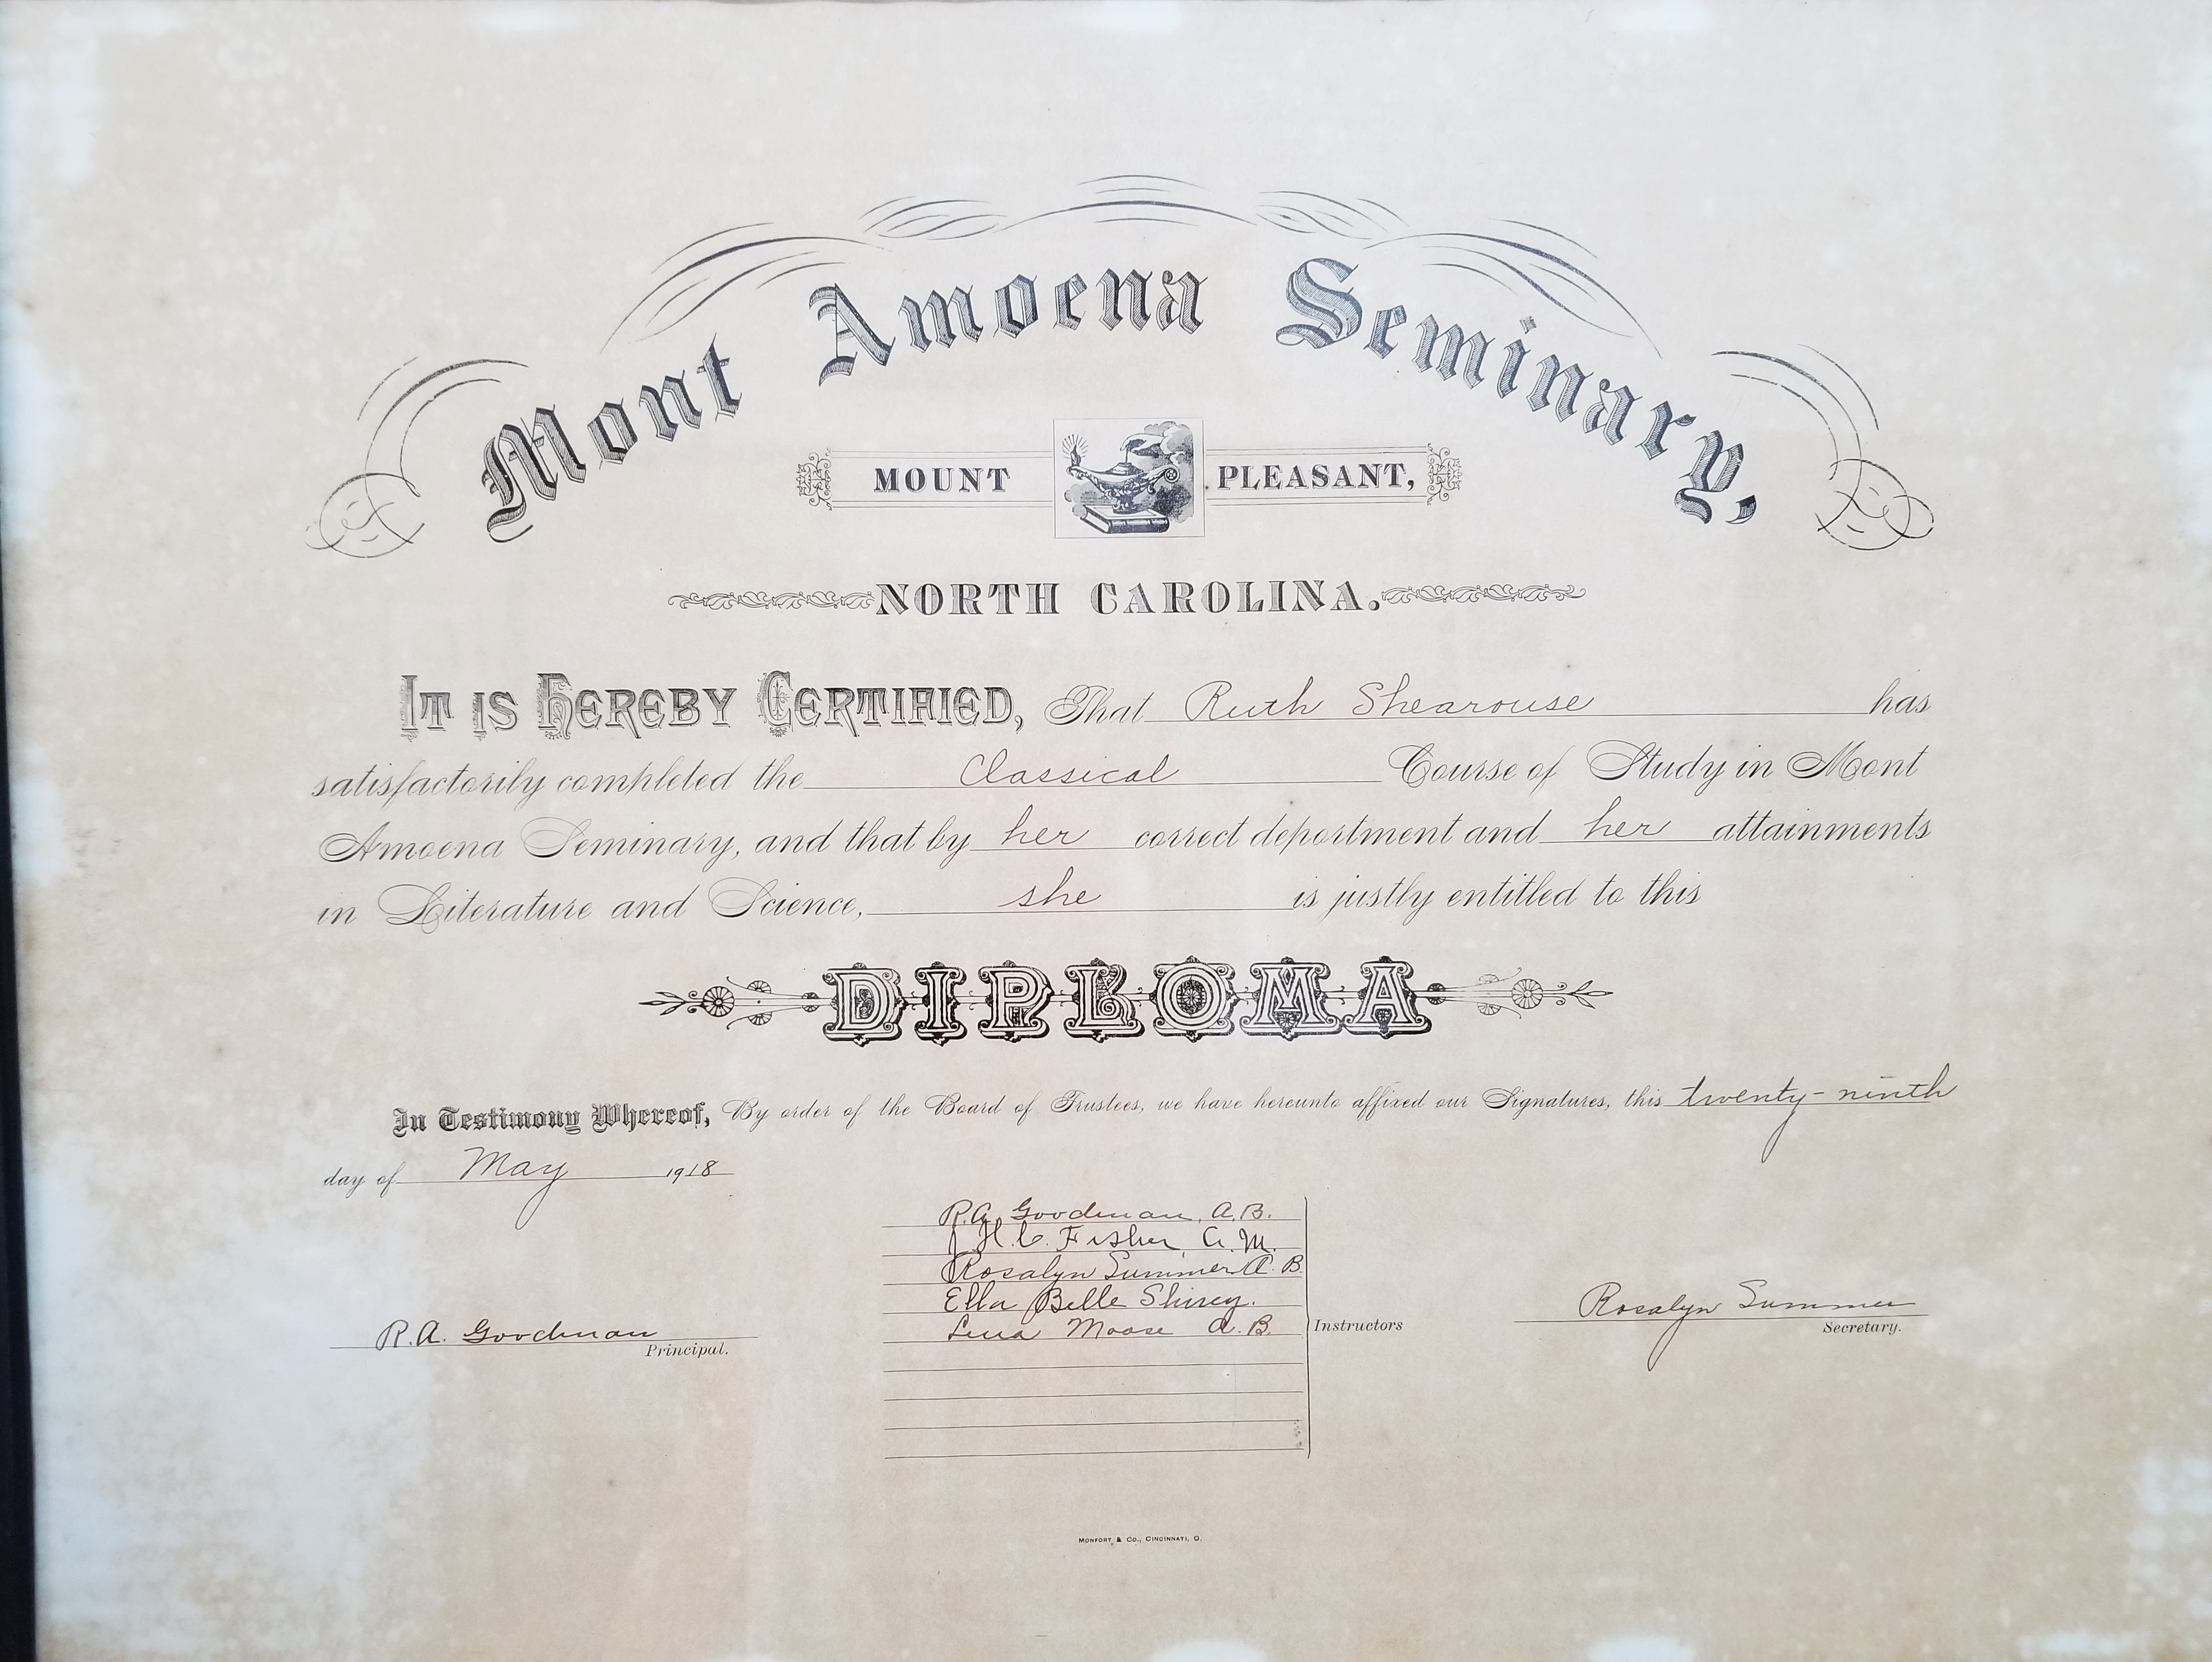 Mont Amoena Seminary,
MOUNT PLEASANT,
NORTH CAROLINA.
IT IS HEREBY CERTIFIED, That Ruth Shearouse has
satisfactorily completed the Classical Course of Study in Mont
Amoena Seminary, and that by her correct deportment and her attainments
in Literature and Science, she is justly entitled to this
DIPLOMA
In Testimony Whereof, By order of the Board of Trustees, we have hereunto affixed our Signatures, this twenty-ninth
day of May 1918
R.A. Goodman, A.B.
J.H.C. Fisher, A.M.
Rosalyn Summer A.B.
Ella Belle Shirey.
Lena Moose A.B.
Instructors
R.A. Goodman
Principal.
Rosalyn Summer
Secretary.
MONFORT & CO., CINCINNATI, O.